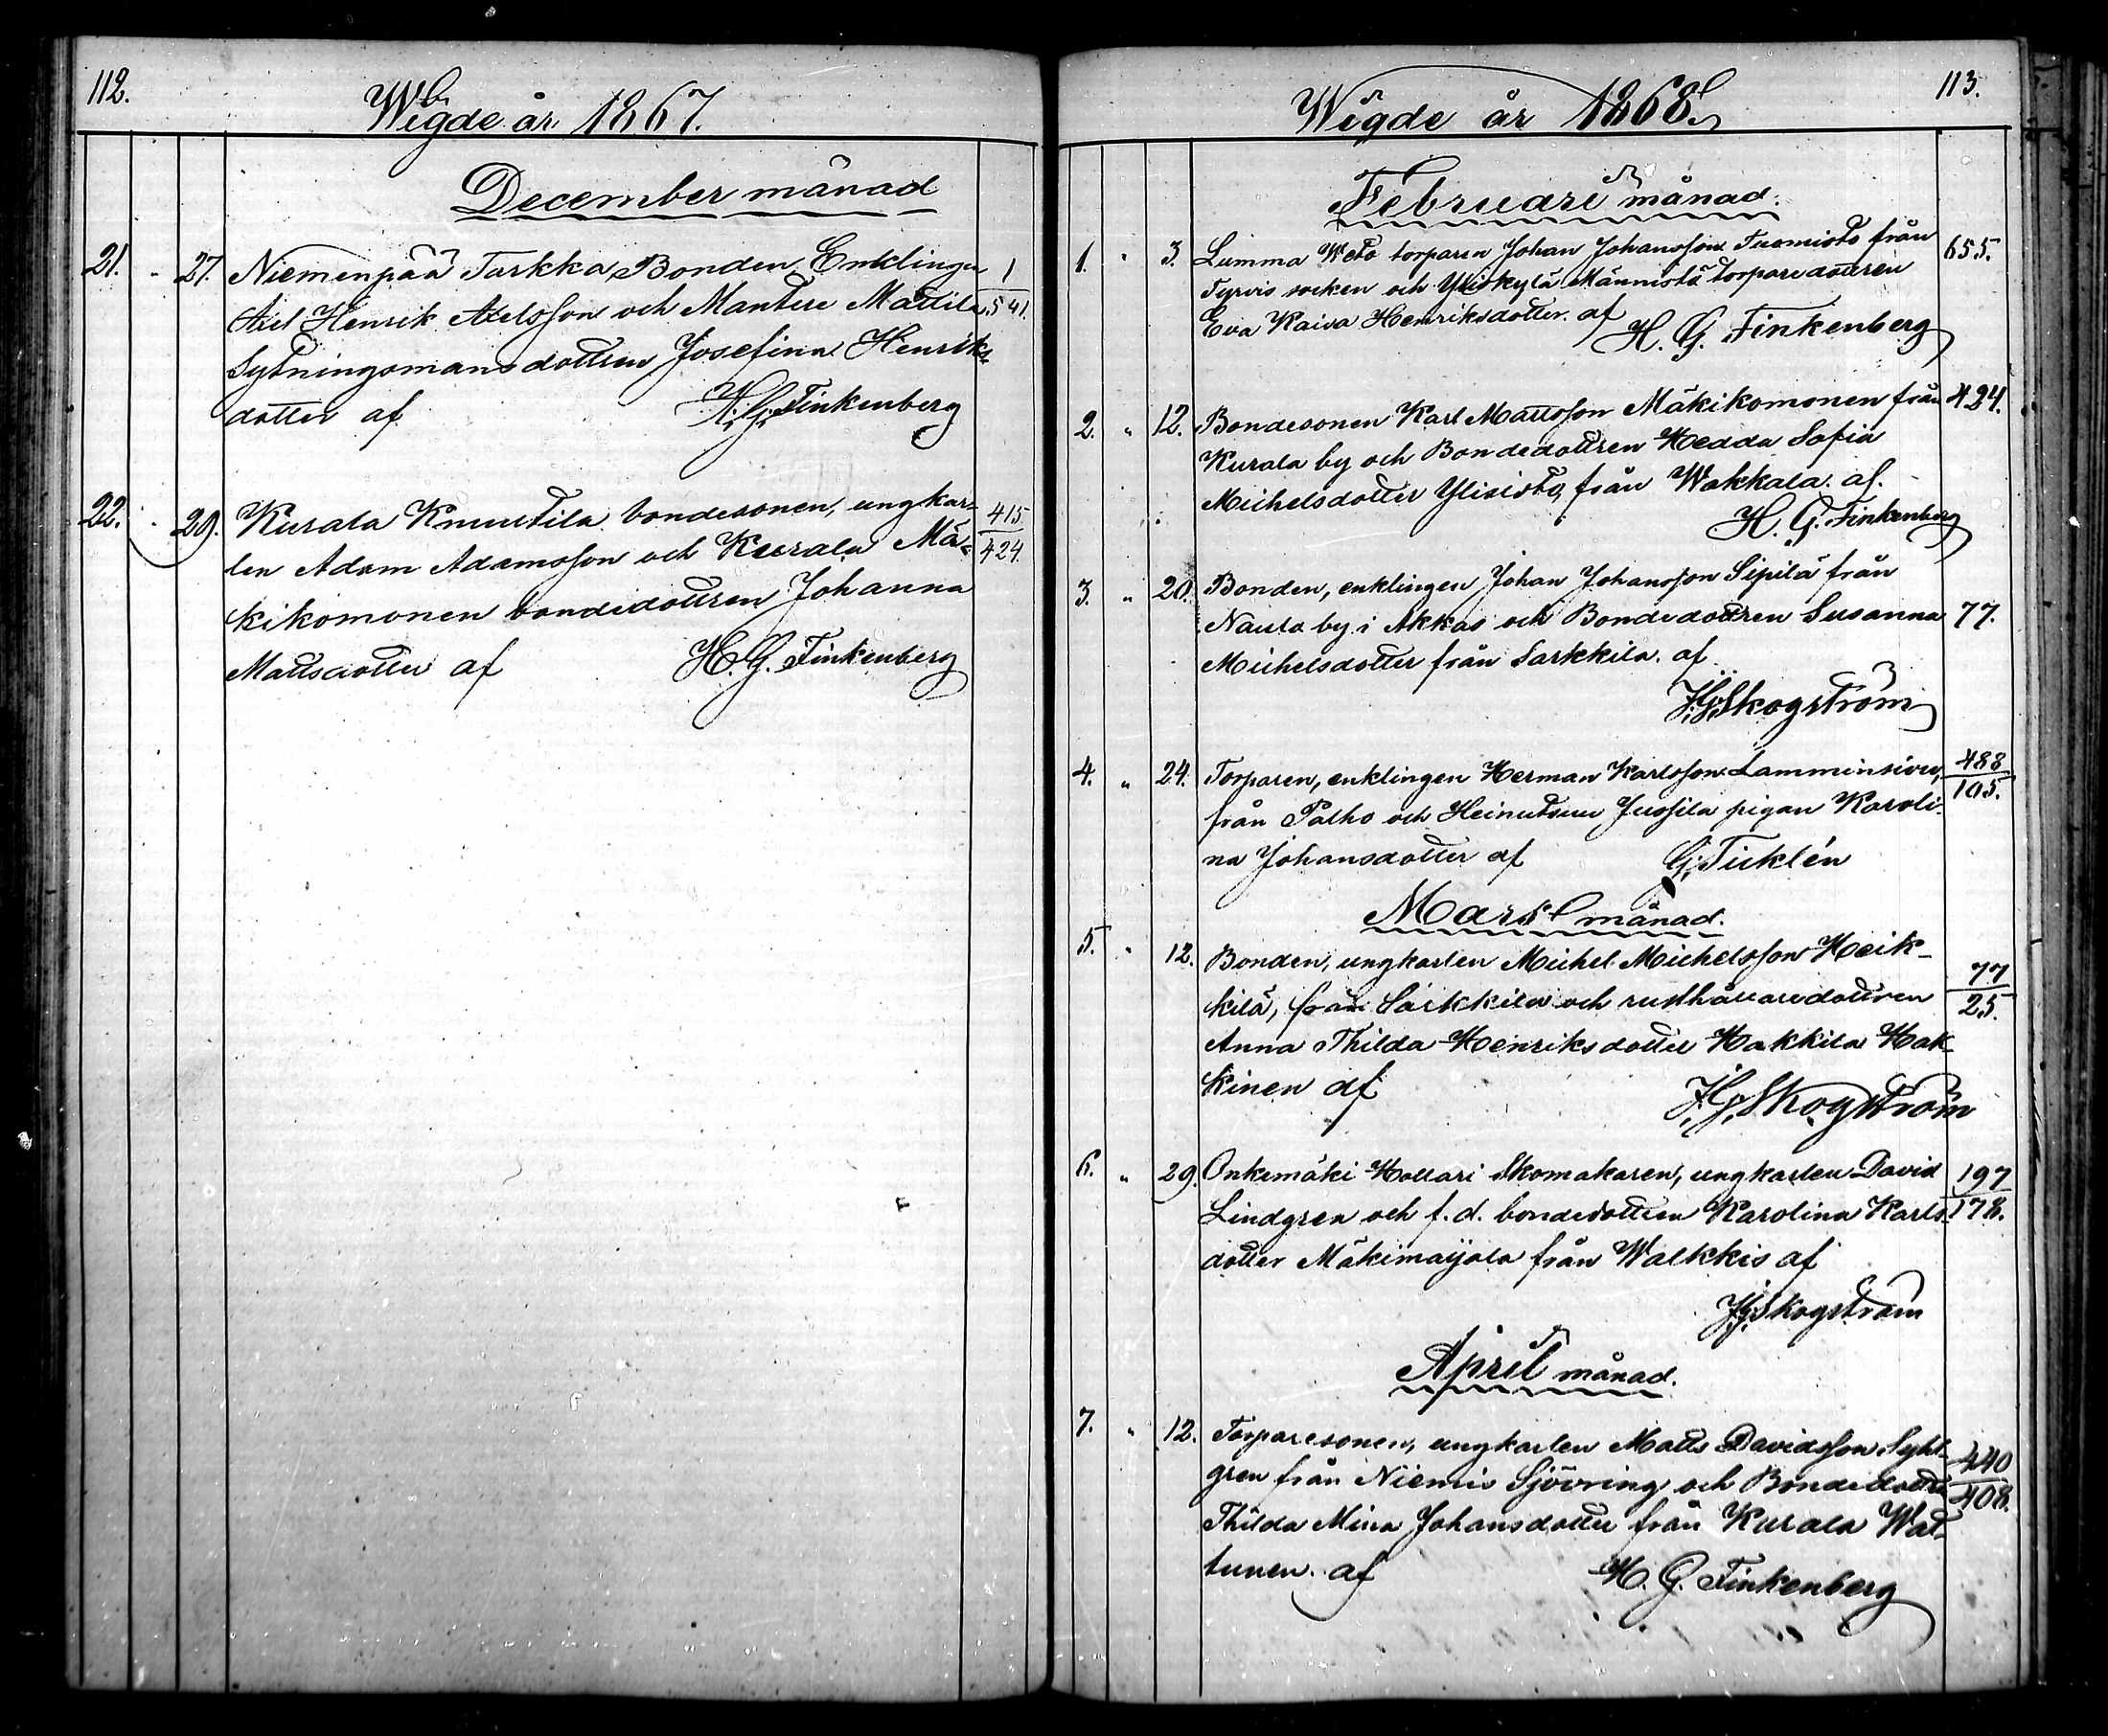 112.
Wigde år 1867.
December månad
21. " 27. Niemenpää Tarkka, Bonden, Enklingen 1
Axel Henrik Axelsson och Mantere Mattila 541.
Sytningsmansdottren Josefina Henriks-
dotter af H. G. Finkenberg
22. " 29. Kurala Knuutila bondesonen, ungkar- 415
len Adam Adamsson och Kurala Mä- 424.
kikomonen bondedottren Johanna
Mattsdotter af H. G. Finkenberg
113.
Wigde år 1868.
Februari månad.
1. " 3. Lumma torparen Johan Johansson Tuomisto från 655.
Tyrvis socken och Yliskylä Männistö torparedottren
Eva Kaisa Henriksdotter af
H. G. Finkenberg
2. " 12. Bondesonen Karl Mattsson Mäkikomonen från 424.
Kurala by och Bondedottren Hedda Sofia
Michelsdotter Ylisisto, från Wakkala. af.
H. G. Finkenberg
3. " 20. Bonden, enklingen Johan Johansson Sipilä från
Naula by i Akkas och Bondedottren Susanna 77.
Michelsdotter från Sarkkila. af
J. G. Skogström
4. " 24. Torparen, enklingen Herman Karlsson Lamminsivu, 488
från Palho och Jussila pigan Karoli- 105.
na Johansdotter af G. Ticklén
Mars månad.
5. " 12. Bonden, ungkarlen Michel Michelsson Heik-
kilä, från Sarkkila och rusthållaredottren 77
25.
Anna Thilda Henriksdotter Hakkila Hak-
kinen af J. G. Skogström
6. " 29. Onkemäki Hollari Skomakaren, ungkarlen David 197
Lindgren och f. d. bondedottren Karolina Karls- 178.
dotter Mäkimaijala från Walkkis af
J. G. Skogström
April månad.
7. " 12. Torparesonen, ungkarlen Matts Davidsson 440
gren från Niemis Sjöoring och Bondedottren 408.
Thilda Mina Johansdotter från Kurala Wat-
tunen. af H. G. Finkenberg